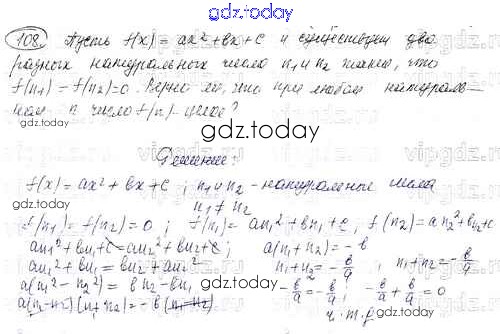 gdz.today
108. Пусть f(x) = ax² + bx + c и существуют два
разных натуральных числа n₁ и n₂ такие, что
f(n₁) = f(n₂) = 0. Верно ли, что при любом натураль-
ном n число f(n) - целое?
gdz.today
Решение:
f(x) = ax² + bx + c ; n₁ и n₂ - натуральные числа
n₁ ≠ n₂
f(n₁) = f(n₂) = 0 ; f(n₁) = an₁² + bn₁ + c , f(n₂) = an₂² + bn₂ + c
an₁² + bn₁ + c = an₂² + bn₂ + c ; a(n₁ + n₂) = -b
an₁² + bn₁ = bn₂ + an₂² n₁ + n₂ = -b/a ; n₁ + n₂ = -b/a
a(n₁² - n₂²) = bn₂ - bn₁ -b/a = -b/a ; -b/a + b/a = 0
a(n₁ - n₂)(n₁ + n₂) = -b(n₁ - n₂) ч.т.д.
gdz.today